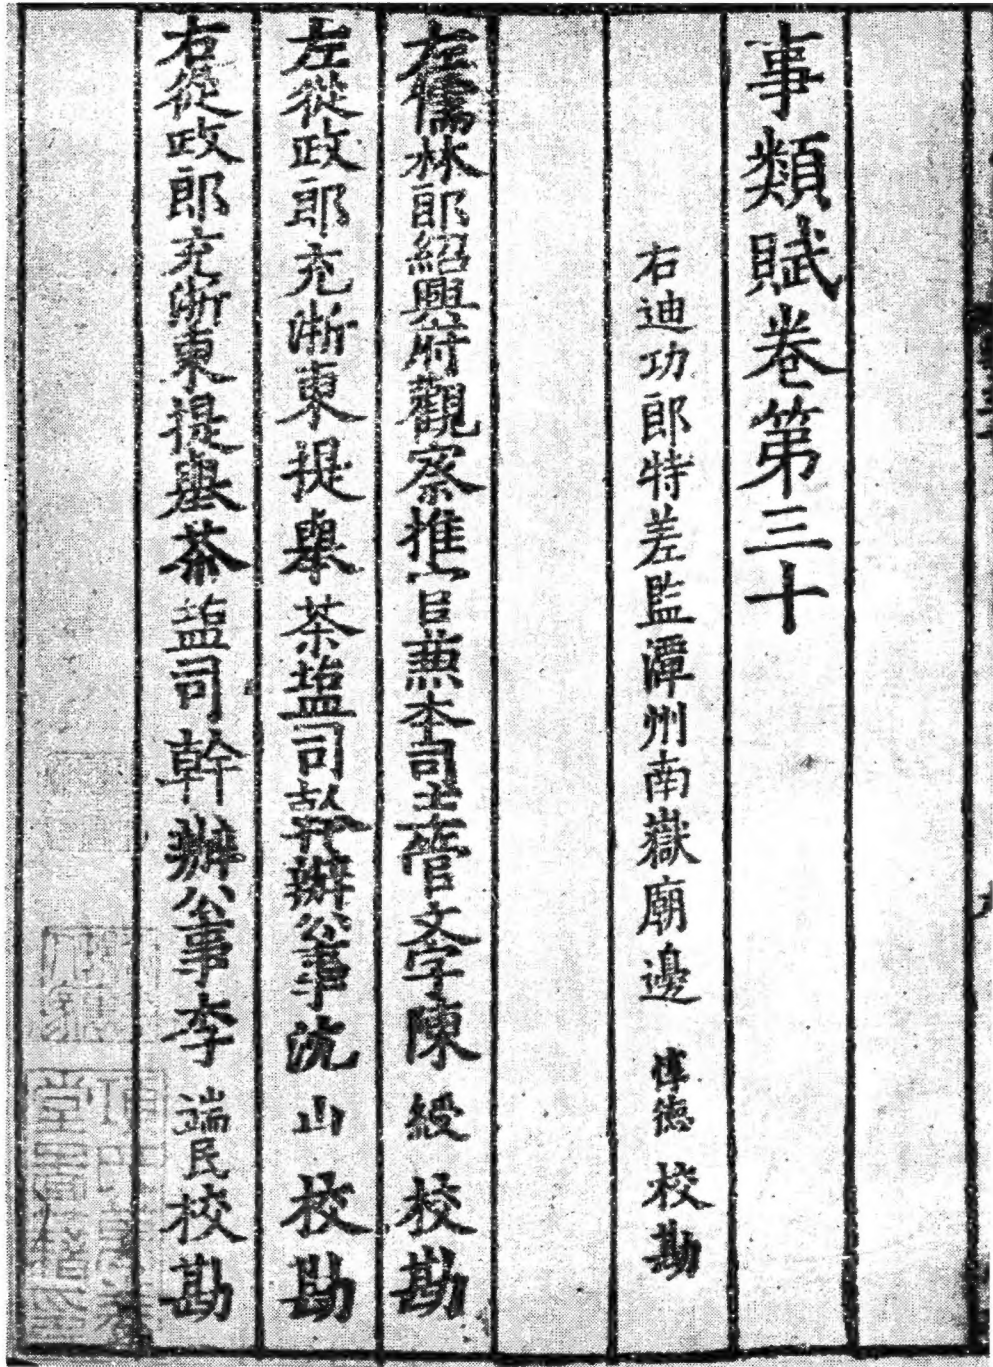 事類賦卷第三十
右迪功郎特差監潭州南嶽廟邊惇德校勘
左儒林郎紹興府觀察推官兼本司主管文字陳綬校勘
左從政郎充浙東提舉茶塩司幹辦公事沈山校勘
右從政郎充浙東提舉茶塩司幹辦公事李端民校勘